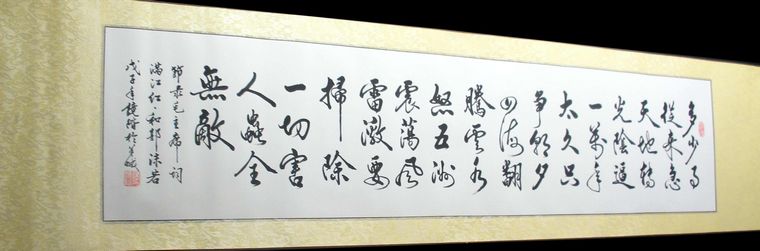 多少事
從来急
天地轉
光陰迫
一萬年
太久只
争朝夕
四海翻
騰雲水
怒五洲
震蕩風
雷激要
掃除
一切害
人蟲全
無敵
毛主席词
满江红·和郭沫若
戊子年